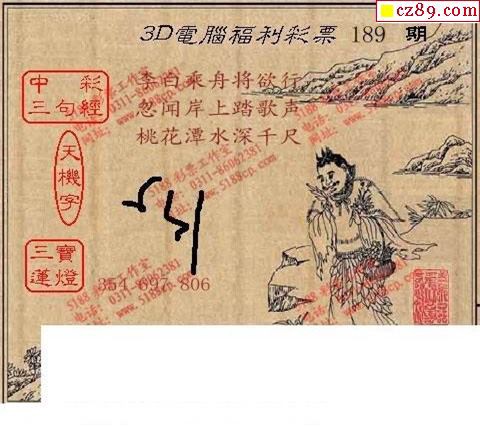 cz89.com
3D電腦福利彩票 189 期
中彩
三句經
李白乘舟将欲行
忽闻岸上踏歌声
桃花潭水深千尺
天機字
三寶
蓮燈
354 697 806
5188 彩票工作室
电话: 0311-86062381
网址: www.5188cp.com